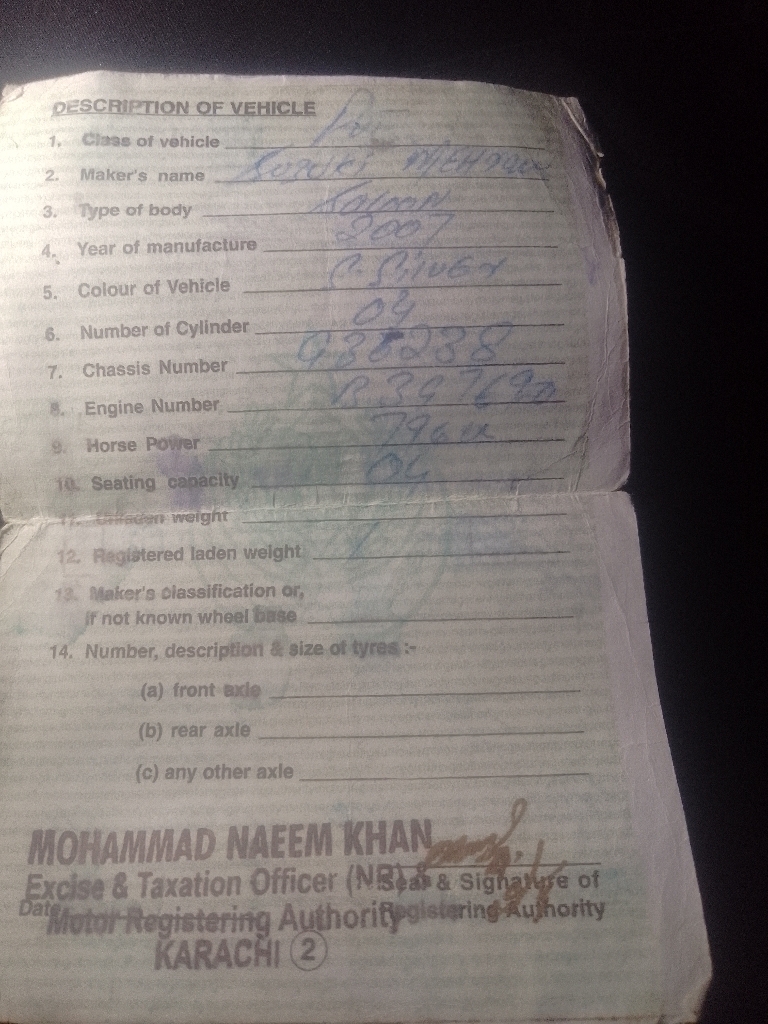 DESCRIPTION OF VEHICLE
1. Class of vehicle
2. Maker's name Suzuki MEHRAN
3. Type of body Saloon
4. Year of manufacture 2007
5. Colour of Vehicle Silver
6. Number of Cylinder 04
7. Chassis Number
8. Engine Number
9. Horse Power 796 cc
10. Seating capacity 04
11. Unladen weight
12. Registered laden weight
13. Maker's classification or,
if not known wheel base
14. Number, description & size of tyres :-
(a) front axle
(b) rear axle
(c) any other axle
MOHAMMAD NAEEM KHAN
Excise & Taxation Officer Seal & Signature of
Date Motor Registering Authority Registering Authority
KARACHI 2